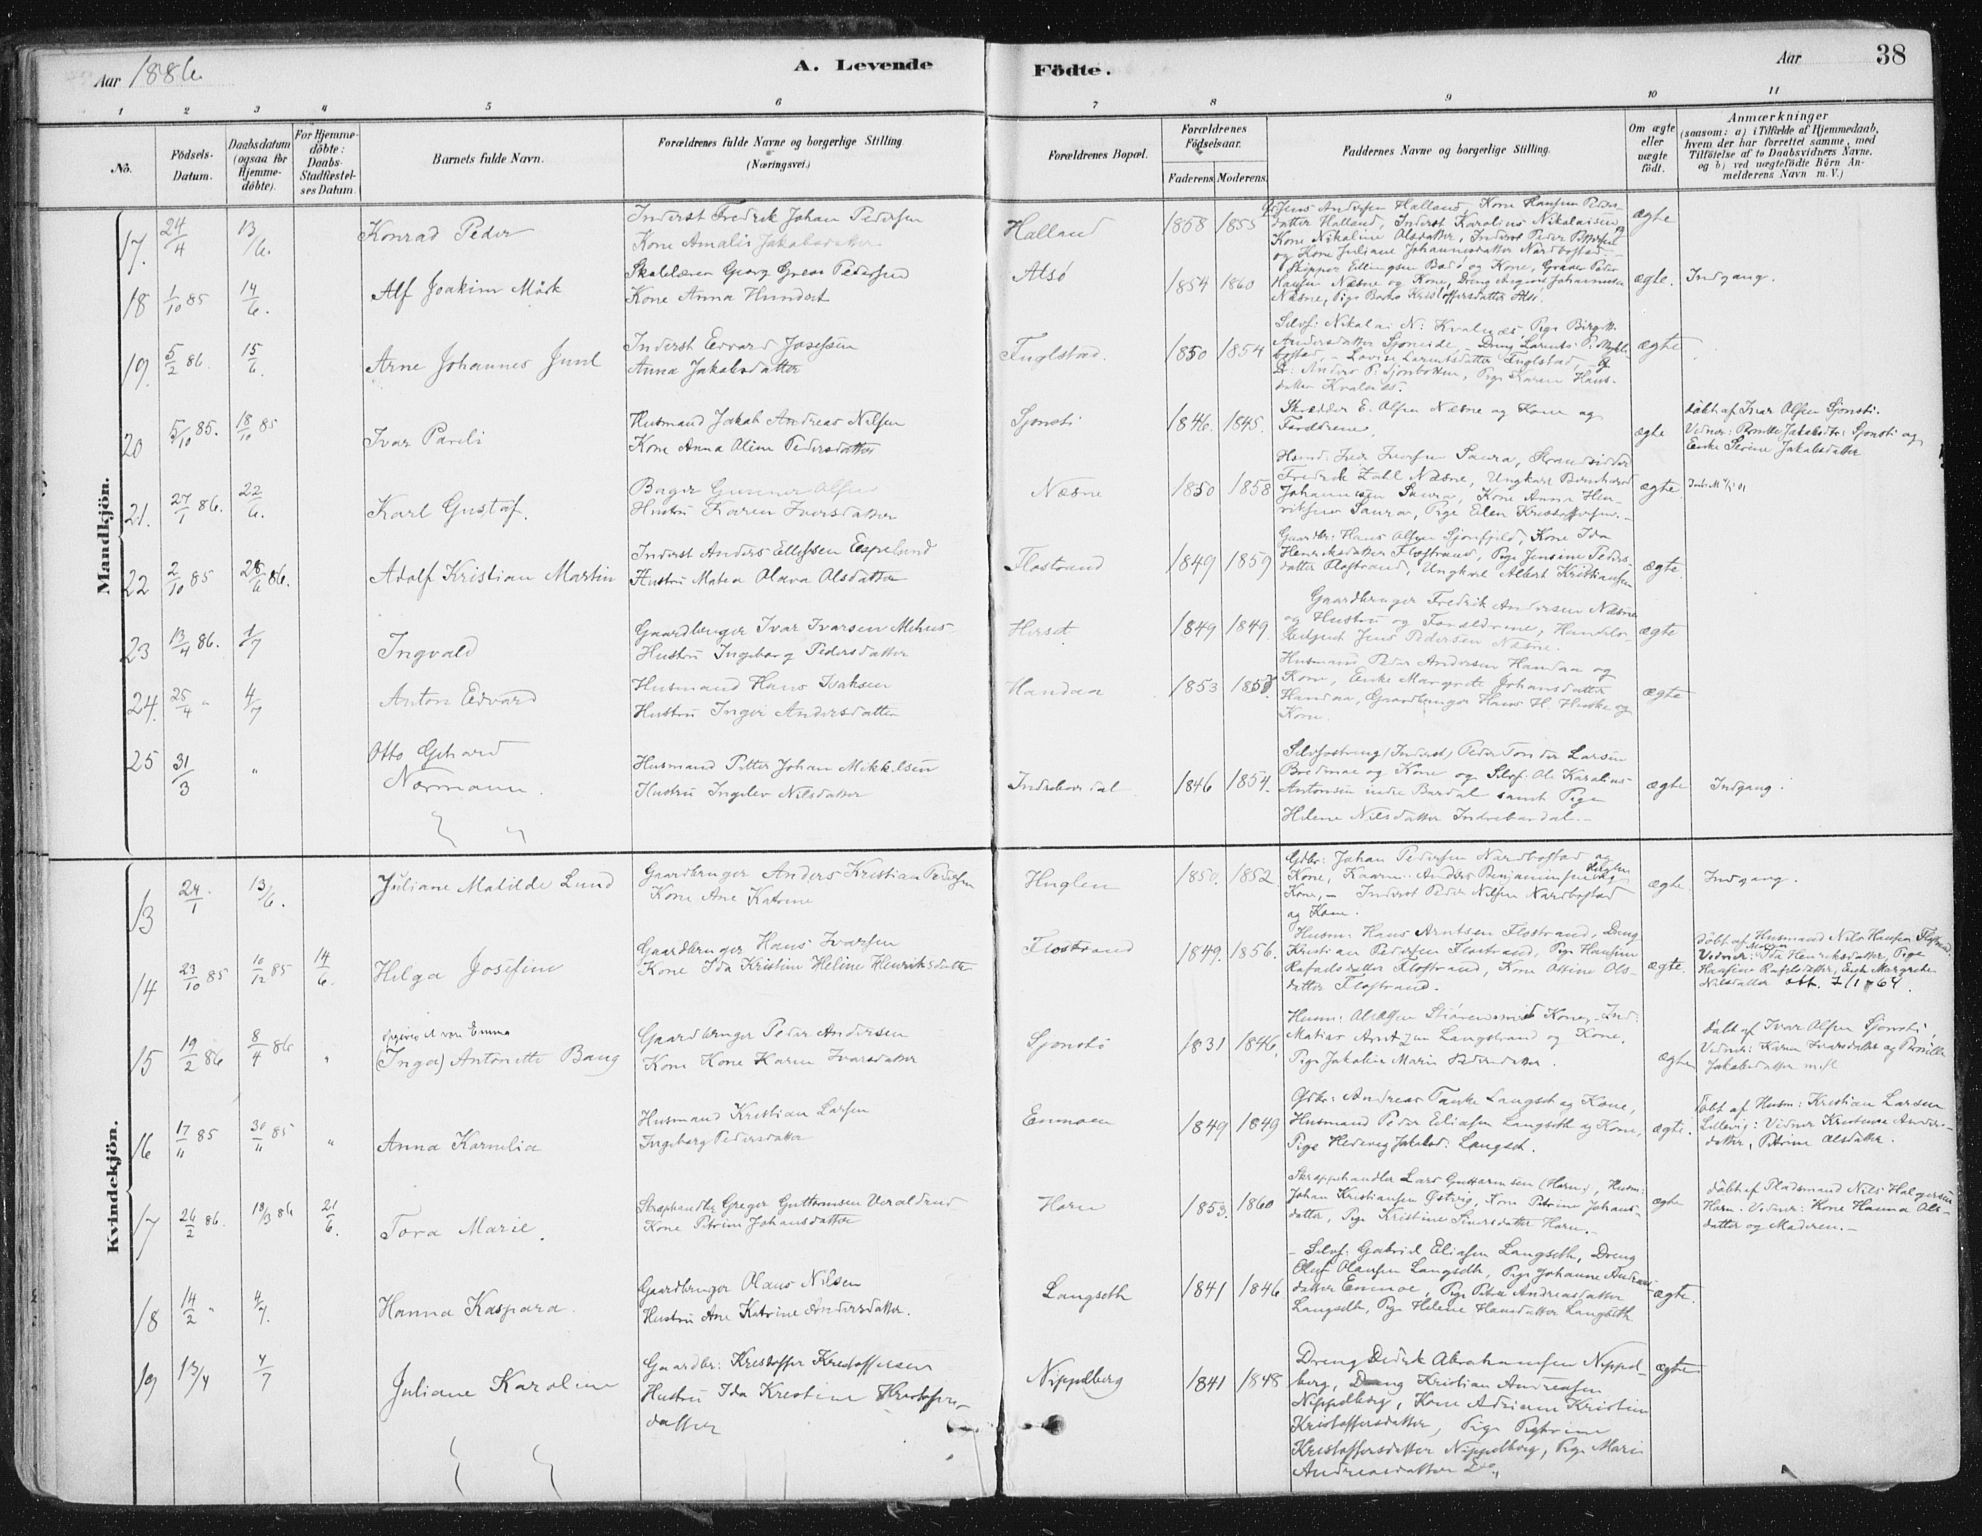 Aar 1886.
A. Levende
Födte.
Aar
38
1 2 3 4 5 6 7 8 9 10 11
No.
Födsels-Datum.
Daabsdatum (ogsaa for Hjemmedöbte).
For Hjemmedöbte: Daabs-Stadfæstelses Datum.
Barnets fulde Navn.
Forældrenes fulde Navne og borgerlige Stilling (Næringsvei.)
Forældrenes Bopæl.
Forældrenes Födselsaar.
Faderens. Moderens.
Faddernes Navne og borgerlige Stilling.
Om ægte eller uægte födt.
Anmærkninger
(saasom: a) i Tilfælde af Hjemmedaab, hvem der har forrettet samme, med Tilföielse af to Daabsvidners Navne, og b) ved uægtefödte Börn Anmelderens Navn m. V.)
Mandkjön.
17. 24/4 13/6. Konrad Peder
Inderst Fredrik Johan Pedersen
Kone Amalie Jakobsdatter
Halland 1858 1855
Jens Andersen Halland, Kone Hansine Peders-
datter Halland, Inderst Karolius Nikolaisen,
Kone Nikoline Olsdatter, Inderst Peder Pettersen
og Kone Juliane Johannesdatter Nordbostad
ægte
18 1/10 85 14/6. Alf Joakim Mörk
Skolelærer Georg Greve Pedersen
Kone Anna Hundert
Alsö 1854 1860
Skipper Ellingsen og Kone, Graver Peder
Hansen Næsne og Kone, Dreng Johannesen
Næsne, Pige Kristoffersdatter Alsö.
ægte. Indgang.
19. 5/2 86. 15/6. Arne Johannes Juul
Inderst Edvard Josefsen
Anna Jakobsdatter
Fuglstad. 1850 1854
Selvf: Nikolai N: Kvalnes Pige Birgitte
Andersdatter Sjoneide, Dreng Larents
Lovise Larentsdatter Fuglstad, og
Anders P: Sjonbotten, Pige Karen Hans-
datter Kvalnæs.
ægte
20 5/10 85. 18/10 85 Ivar Pareli
Husmand Jakob Andreas Nilsen
Kone Anna Oline Pedersdatter
Sjonsti 1846. 1845.
Skrædder E. Olsen Næsne og Kone og
Forældrene.
ægte
döbt af Ivar Olsen Sjonsti.
Vidner: Jakobsdtr: Sjonsti og
Enke Serine Jakobsdatter
21. 27/1 86. 22/6. Karl Gustaf.
Bager Gunner Olsen
Hustru Karen Iversdatter
Næsne 1850 1858
Iversen Saura, Strandsidder
Fredrik Zahl Næsne, Ungkarl Bernhard
Johannesen Saura, Kone Anna Hen-
riksen Saura, Pige Elen Kristoffersen.
ægte
22 2/10 85 28/6 86. Adolf Kristian Martin
Inderst Anders Ellefsen Espelund
Hustru Matea Olava Olsdatter
Flostrand 1849 1859
Gaardbr: Hans Olsen Sjonfjeld, Kone Ida
Henriksdatter Flostrand, Pige Jensine Peders-
datter Flostrand, Ungkarl Albert Kristiansen
ægte.
23 13/4 86. 1/7 Ingvald
Gaardbruger Ivar Ivarsen Mehus
Hustru Ingeborg Pedersdatter
Herset 1849 1849.
Gaardbruger Fredrik Andersen Næsne
og Hustru og Forældrene, Handels-
betjent Jens Pedersen Næsne.
ægte
24. 25/4 " 4/7 Anton Edvard
Husmand Hans Isaksen
Hustru Inger Andersdatter
Handaa 1853 1857
Husmand Peder Andersen Handaa og
Kone, Enke Margrete Johansdatter
Handaa, Gaardbruger Hans H. og
Kone.
ægte
25 31/3 " Otto Gerhard
Normann.
Husmand Petter Johan Mikkelsen
Hustru Ingelev Nilsdatter
Indrebardal 1846 1854.
Selvfostring (Inderst) Peder Larsen
Bredmae og Kone og Selvf: Ole Karolius
Antonsen indre Bardal samt Pige
Helene Nilsdatter Indrebardal.
ægte Indgang.
Kvindekjön.
13 24/1 13/6. Juliane Matilde Lund
Gaardbruger Anders Kristian Pedersen
Kone Ane Katrine
Huglen 1850. 1852
Gdbr: Johan Pedersen Nordbostad og
Kone, Kaarm: Anders Benjaminsen Huglen og
Kone, Inderst Peder Nilsen Nordbostad
og Kone.
ægte. Indgang.
14 23/10 85 10/12 85 14/6. Helga Josefine
Gaardbruger Hans Ivarsen
Kone Ida Kristine Heline Henriksdatter
Flostrand 1849. 1856.
Husm: Hans Arntsen Flostrand, Dreng
Kristian Pedersen Flostrand, Pige Hansine
Rafaelsdatter Flostrand, Kone Olsine Ols-
datter Flostrand.
ægte.
döbt af Husmand Nils Hansen Flostrand.
Vidner: Moren Ida Henriksdatter, Pige
Hansine Rafelsdatter, Enke Margrete
Nilsdatter att. 7/1-64.
15 19/2 86 8/4 86 " opgives at være Emma
(Inga) Antonette Bang
Gaardbruger Peder Andersen
Kone Kone Karen Ivarsdatter
Sjonstö 1831 1846.
Husm: og Kone, Ind:
Matias Arntzen Langstrand og Kone,
Pige Jakobine Marie Pedersdatter.
ægte
döbt af Ivar Olsen Sjonsti,
Vidner: Karen Ivarsdatter og Pernille
Jakobsdatter m.fl
16 17/11 85 30/11 85 " Anna Kornelia
Husmand Kristian Larsen
Ingeborg Pedersdatter
Enmoen 1849 1849
Gdbr: Andreas Tanke Langset og Kone,
Husmand Peder Eliasen Langseth og Kone,
Pige Hedevig Jakobsd: Langset.
ægte.
Döbt af Husm: Kristian Larsen
Lillevig: Vidner Kristense Anders-
datter, Petrine Olsdatter.
17 26/2 86. 18/3 86 21/6. Tora Marie.
Skraphandler Greger Guttormsen Veraldrud
Kone Petrine Johansdatter
Horn 1853. 1860
Skraphandler Lars Guttormsen (Horn), Husm:
Johan Kristiansen Östvig, Kone Petrine Johans-
datter, Pige Kristine Iversdatter Horn.
ægte
döbt af Pladsmand Nils Halgersen
Horn. Vidner: Kone Hanna Ols-
datter og Moderen.
18 14/2 " 4/7. Hanna Kaspara.
Gaardbruger Olaus Nilsen
Hustru Ane Katrine Andersdatter.
Langseth 1841 1846
Selvf: Gabriel Eliasen Langseth, Dreng
Oluf Olausen Langseth, Pige Johanne Andreas-
datter Enmoe, Pige Petra Andreasdatter
Langseth, Pige Helene Hansdatter Langseth
ægte.
19 13/4 4/7 Juliane Karoline
Gaardbr: Kristoffer Kristoffersen
Hustru Ida Kristine Kristofers-
datter
Nippelberg 1841 1848
Dreng Didrik Abrahamsen Nippel-
berg, Dreng Kristian Andreasen
Nippelberg, Kone Adriane Kristine
Kristoffersdatter, Pige Petrine
Kristoffersdatter Nippelberg, Pige Marie
Andreasdatter
ægte